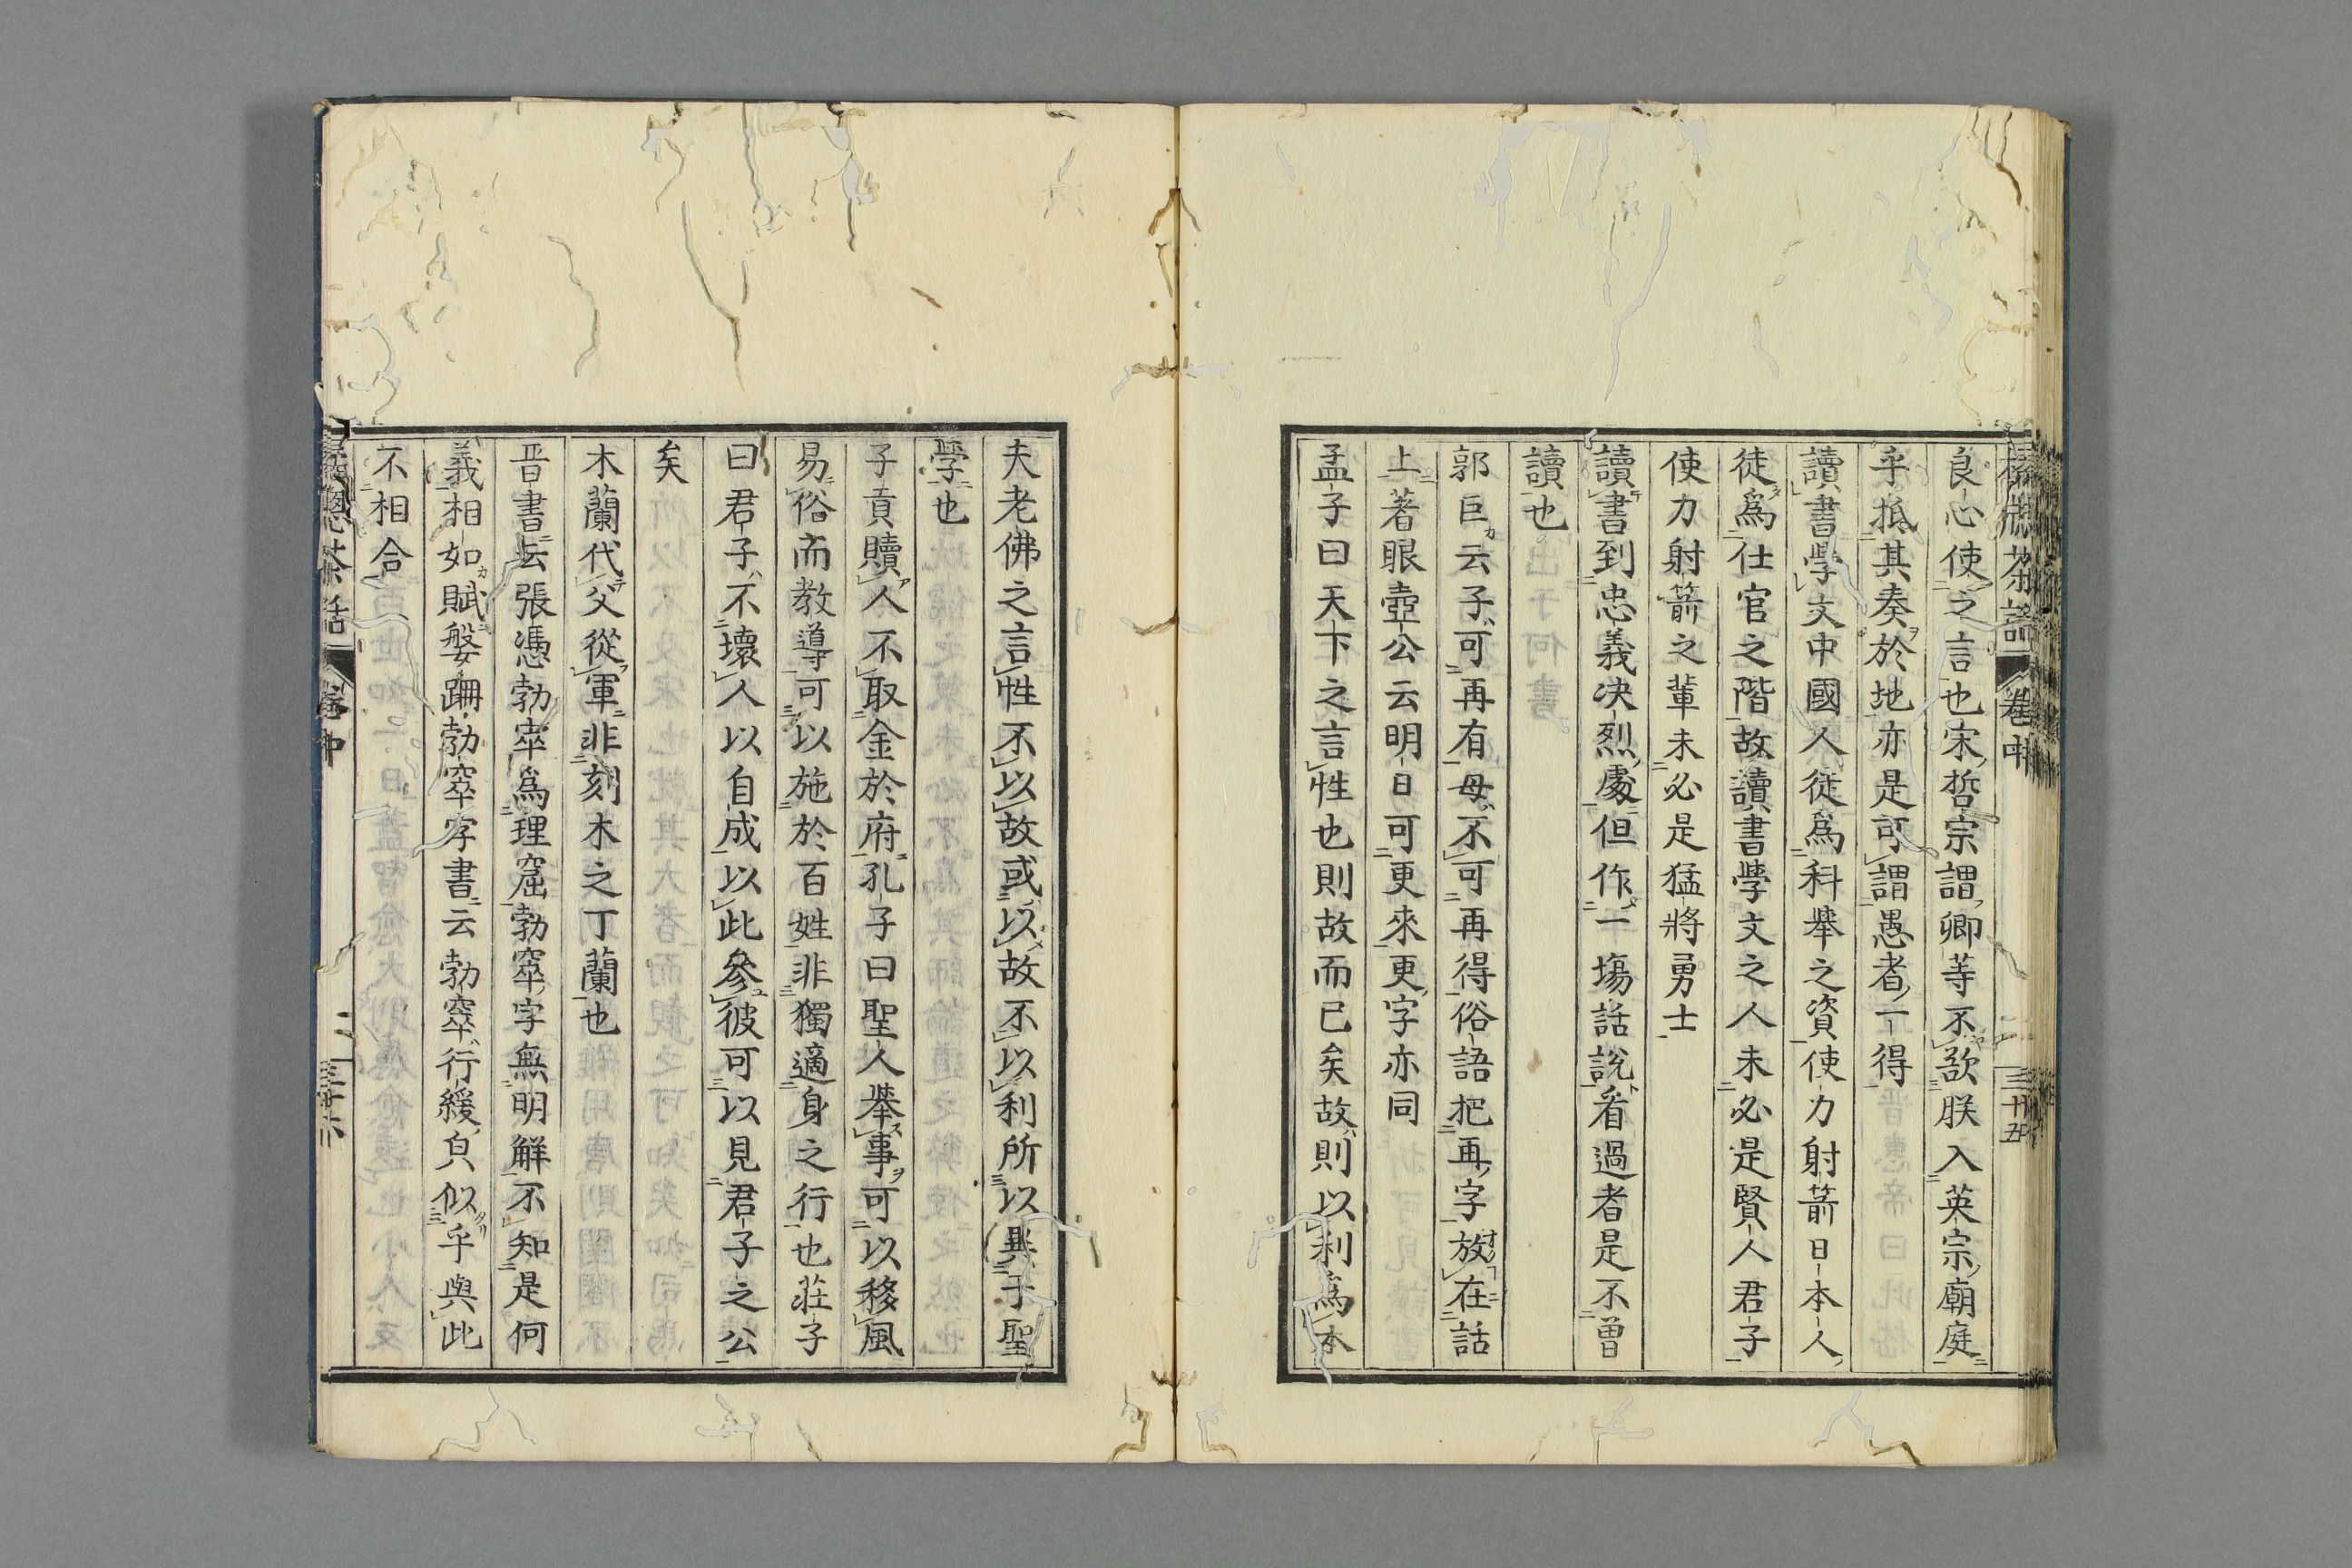 良心使之言也宋哲宗謂卿等不欲朕入英宗廟庭
乎抵其奏於地亦是可謂愚者一得
讀書學文中國人徒爲科舉之資使力射箭日本人
徒爲仕官之階故讀書學文之人未必是賢人君子
使力射箭之輩未必是猛將勇士
讀書到忠義决烈處但作一塲話說看過者是不曽
讀也
郭巨云子可再有母不可再得俗語把再字放在話
上著眼壺公云明日可更來更字亦同
孟子曰天下之言性也則故而已矣故則以利爲本
茶話 卷中 三十五
夫老佛之言性不以故或以故不以利所以異于聖
學也
子貢贖人不取金於府孔子曰聖人舉事可以移風
易俗而教導可以施於百姓非獨適身之行也莊子
曰君子不壞人以自成以此參彼可以見君子之公
矣
木蘭代父從軍非刻木之丁蘭也
晋書云張憑勃窣爲理窟勃窣字無明解不知是何
義相如賦媻跚勃窣字書云勃窣行緩皃似乎與此
不相合
茶話 卷中